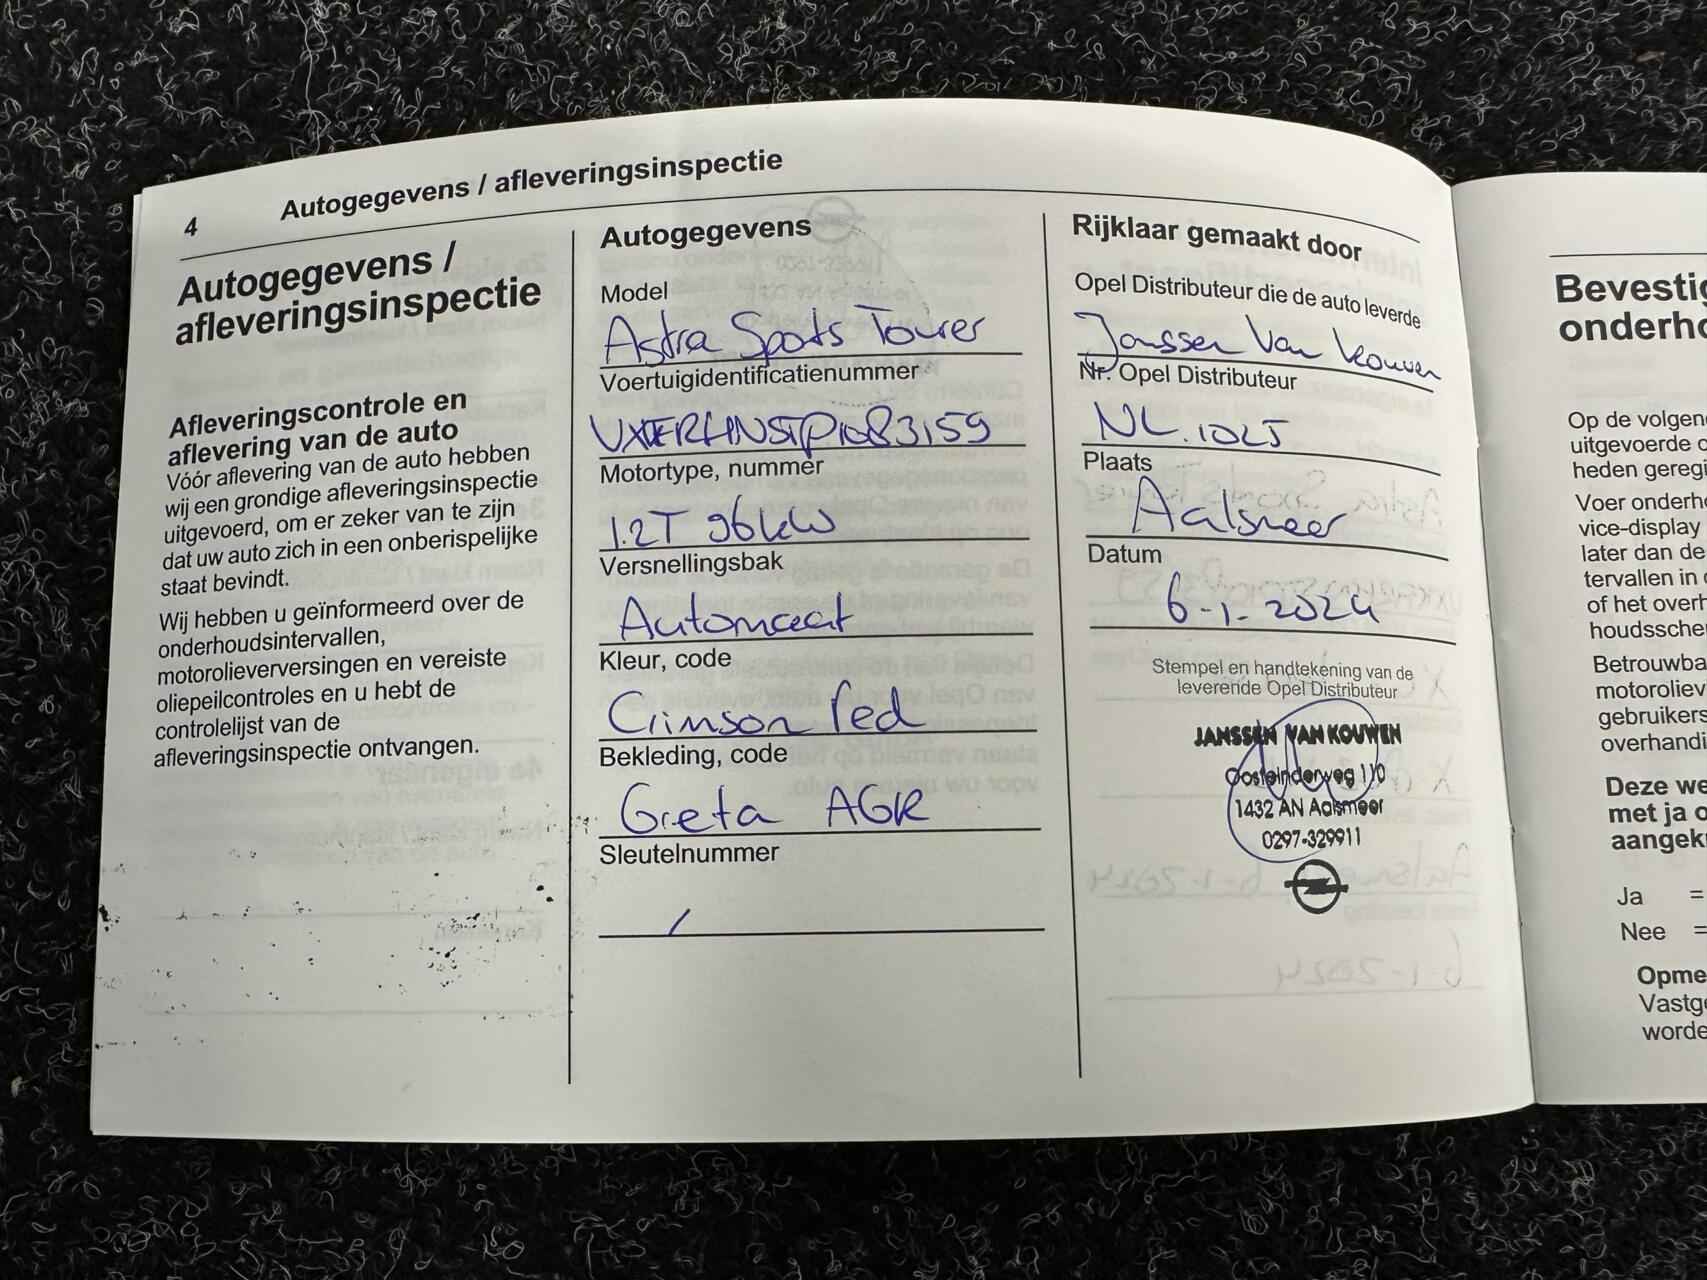 4 Autogegevens / afleveringsinspectie
Autogegevens /
afleveringsinspectie
Afleveringscontrole en
aflevering van de auto
Vóór aflevering van de auto hebben
wij een grondige afleveringsinspectie
uitgevoerd, om er zeker van te zijn
dat uw auto zich in een onberispelijke
staat bevindt.
Wij hebben u geïnformeerd over de
onderhoudsintervallen,
motorolieverversingen en vereiste
oliepeilcontroles en u hebt de
controlelijst van de
afleveringsinspectie ontvangen.
Autogegevens
Model
Astra Sports Tourer
Voertuigidentificatienummer
Motortype, nummer
1.2T 96kW
Versnellingsbak
Automaat
Kleur, code
Crimson red
Bekleding, code
Greta AGR
Sleutelnummer
/
Rijklaar gemaakt door
Opel Distributeur die de auto leverde
Janssen Van Kouwen
Nr. Opel Distributeur
NL.1025
Plaats
Aalsmeer
Datum
6-1-2024
Stempel en handtekening van de
leverende Opel Distributeur
JANSSEN VAN KOUWEN
Oosteinderweg 110
1432 AN Aalsmeer
0297-329911
Bevestig
onderho
Op de volgen
uitgevoerde o
heden geregi
Voer onderho
vice-display
later dan de
tervallen in
of het overh
houdsscher
Betrouwba
motoroliev
gebruikers
overhandi
Deze we
met ja o
aangek
Ja =
Nee =
Opme
Vastge
worde